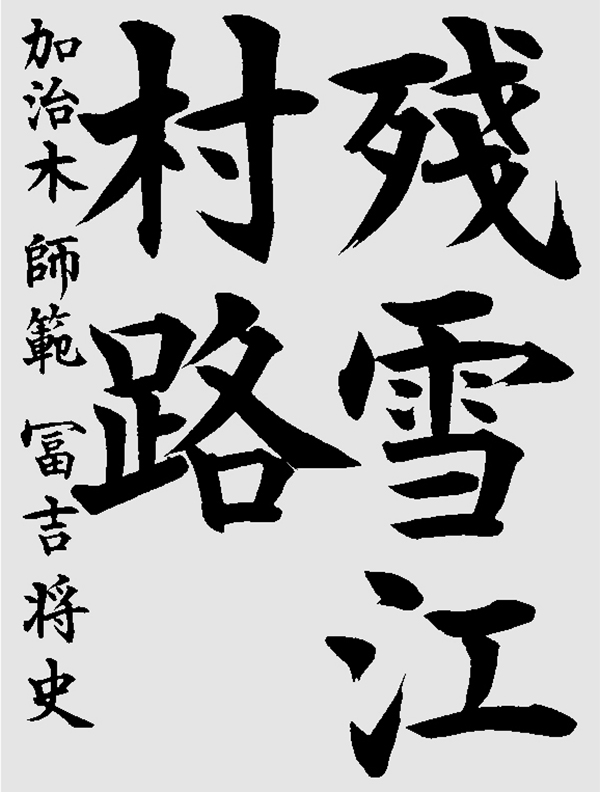 殘雪江
村路
加治木 師範 冨吉将史